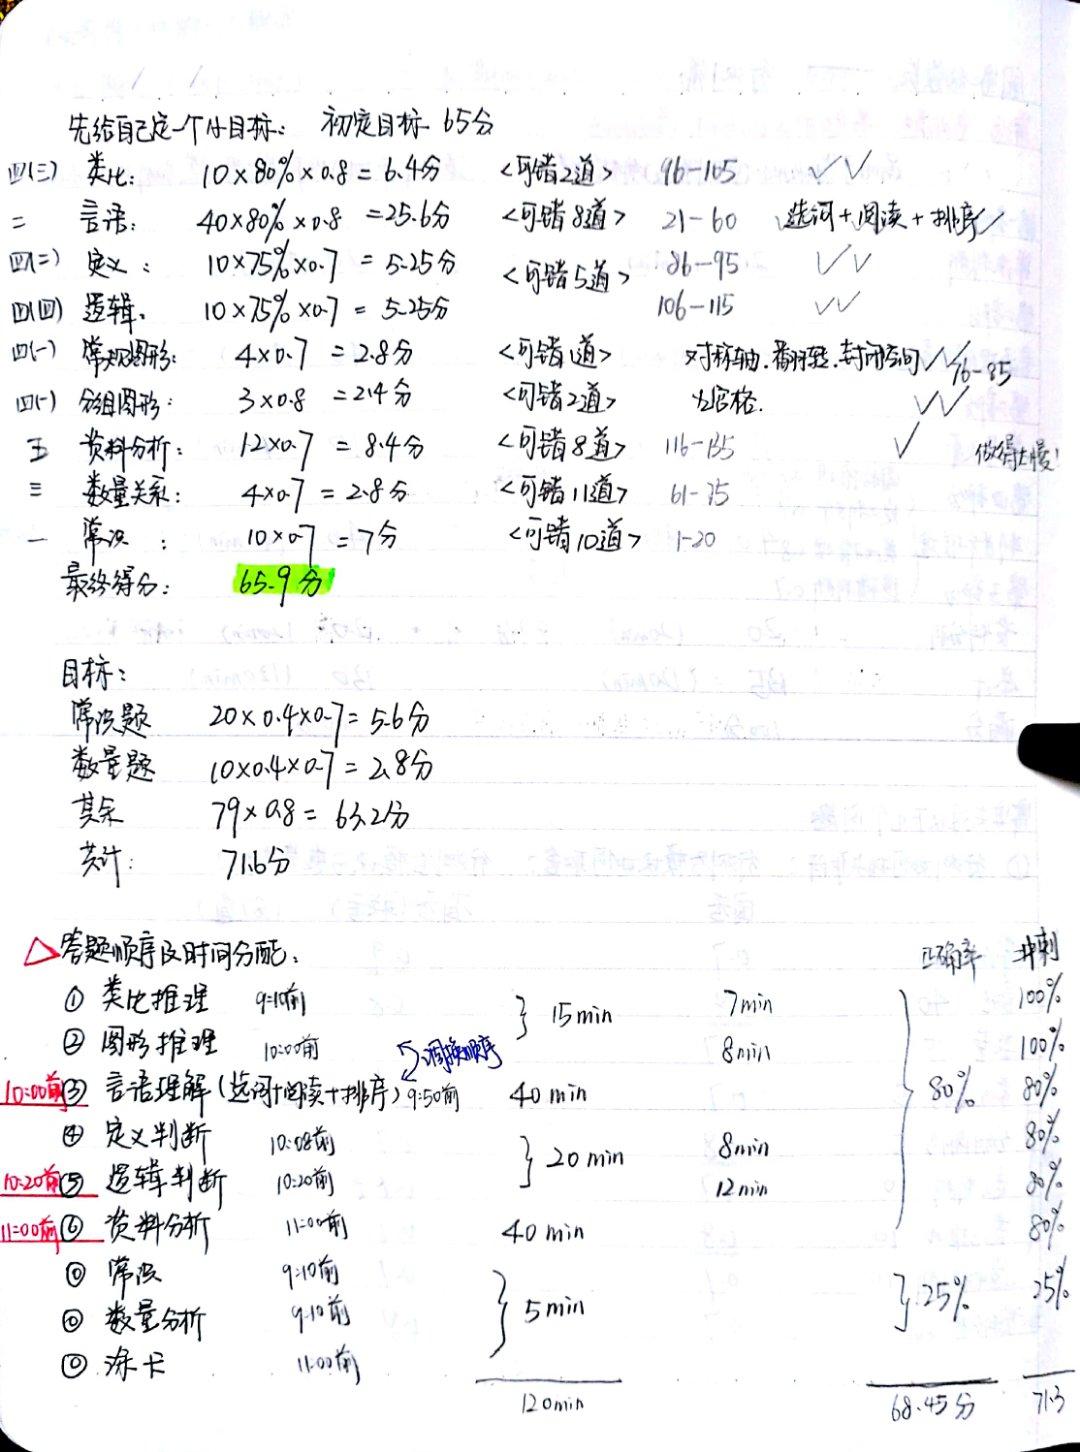 先给自己定一个小目标： 初定目标 65分
四(三) 类比： 10×80%×0.8=6.4分 <可错2道> 96-105 ✓✓
二 言语： 40×80%×0.8=25.6分 <可错8道> 21-60 选词+阅读+排序✓
四(二) 定义： 10×75%×0.7=5.25分 <可错5道> 86-95 ✓✓
四(四) 逻辑： 10×75%×0.7=5.25分 106-115 ✓✓
四(一) 常规图形： 4×0.7=2.8分 <可错1道> 对称轴.翻转.封闭空间✓✓ 76-85
四(一) 分组图形： 3×0.8=2.4分 <可错2道> 九宫格. ✓✓
五 资料分析： 12×0.7=8.4分 <可错8道> 116-135 ✓ 做得太慢！
三 数量关系： 4×0.7=2.8分 <可错11道> 61-75
一 常识： 10×0.7=7分 <可错10道> 1-20
最终得分： 65.9分
目标：
常识题 20×0.4×0.7=5.6分
数量题 10×0.4×0.7=2.8分
其余 79×0.8=63.2分
共计： 71.6分
△答题顺序及时间分配： 正确率 冲刺
① 类比推理 9:10前 15min 7min 100%
② 图形推理 10:00前 8min 100%
调换顺序
10:00前 ③ 言语理解(选词+阅读+排序) 9:50前 40min 80% 80%
④ 定义判断 10:08前 20min 8min 80%
10:20前 ⑤ 逻辑判断 10:20前 12min 80%
11:00前 ⑥ 资料分析 11:00前 40min 80%
⓪ 常识 9:10前 5min 25% 25%
⓪ 数量分析 9:10前
⓪ 涂卡 11:00前
120min 68.45分 71.3